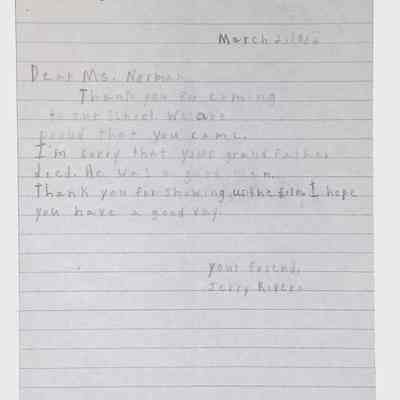 March 2,
Dear Ms. Norman,
Thank you for coming
to our school. We are
proud that you came.
I'm sorry that your grandfather
died. He was a good man.
Thank you for showing us the film. I hope
you have a good day.
your friend,
Jerry Rivera